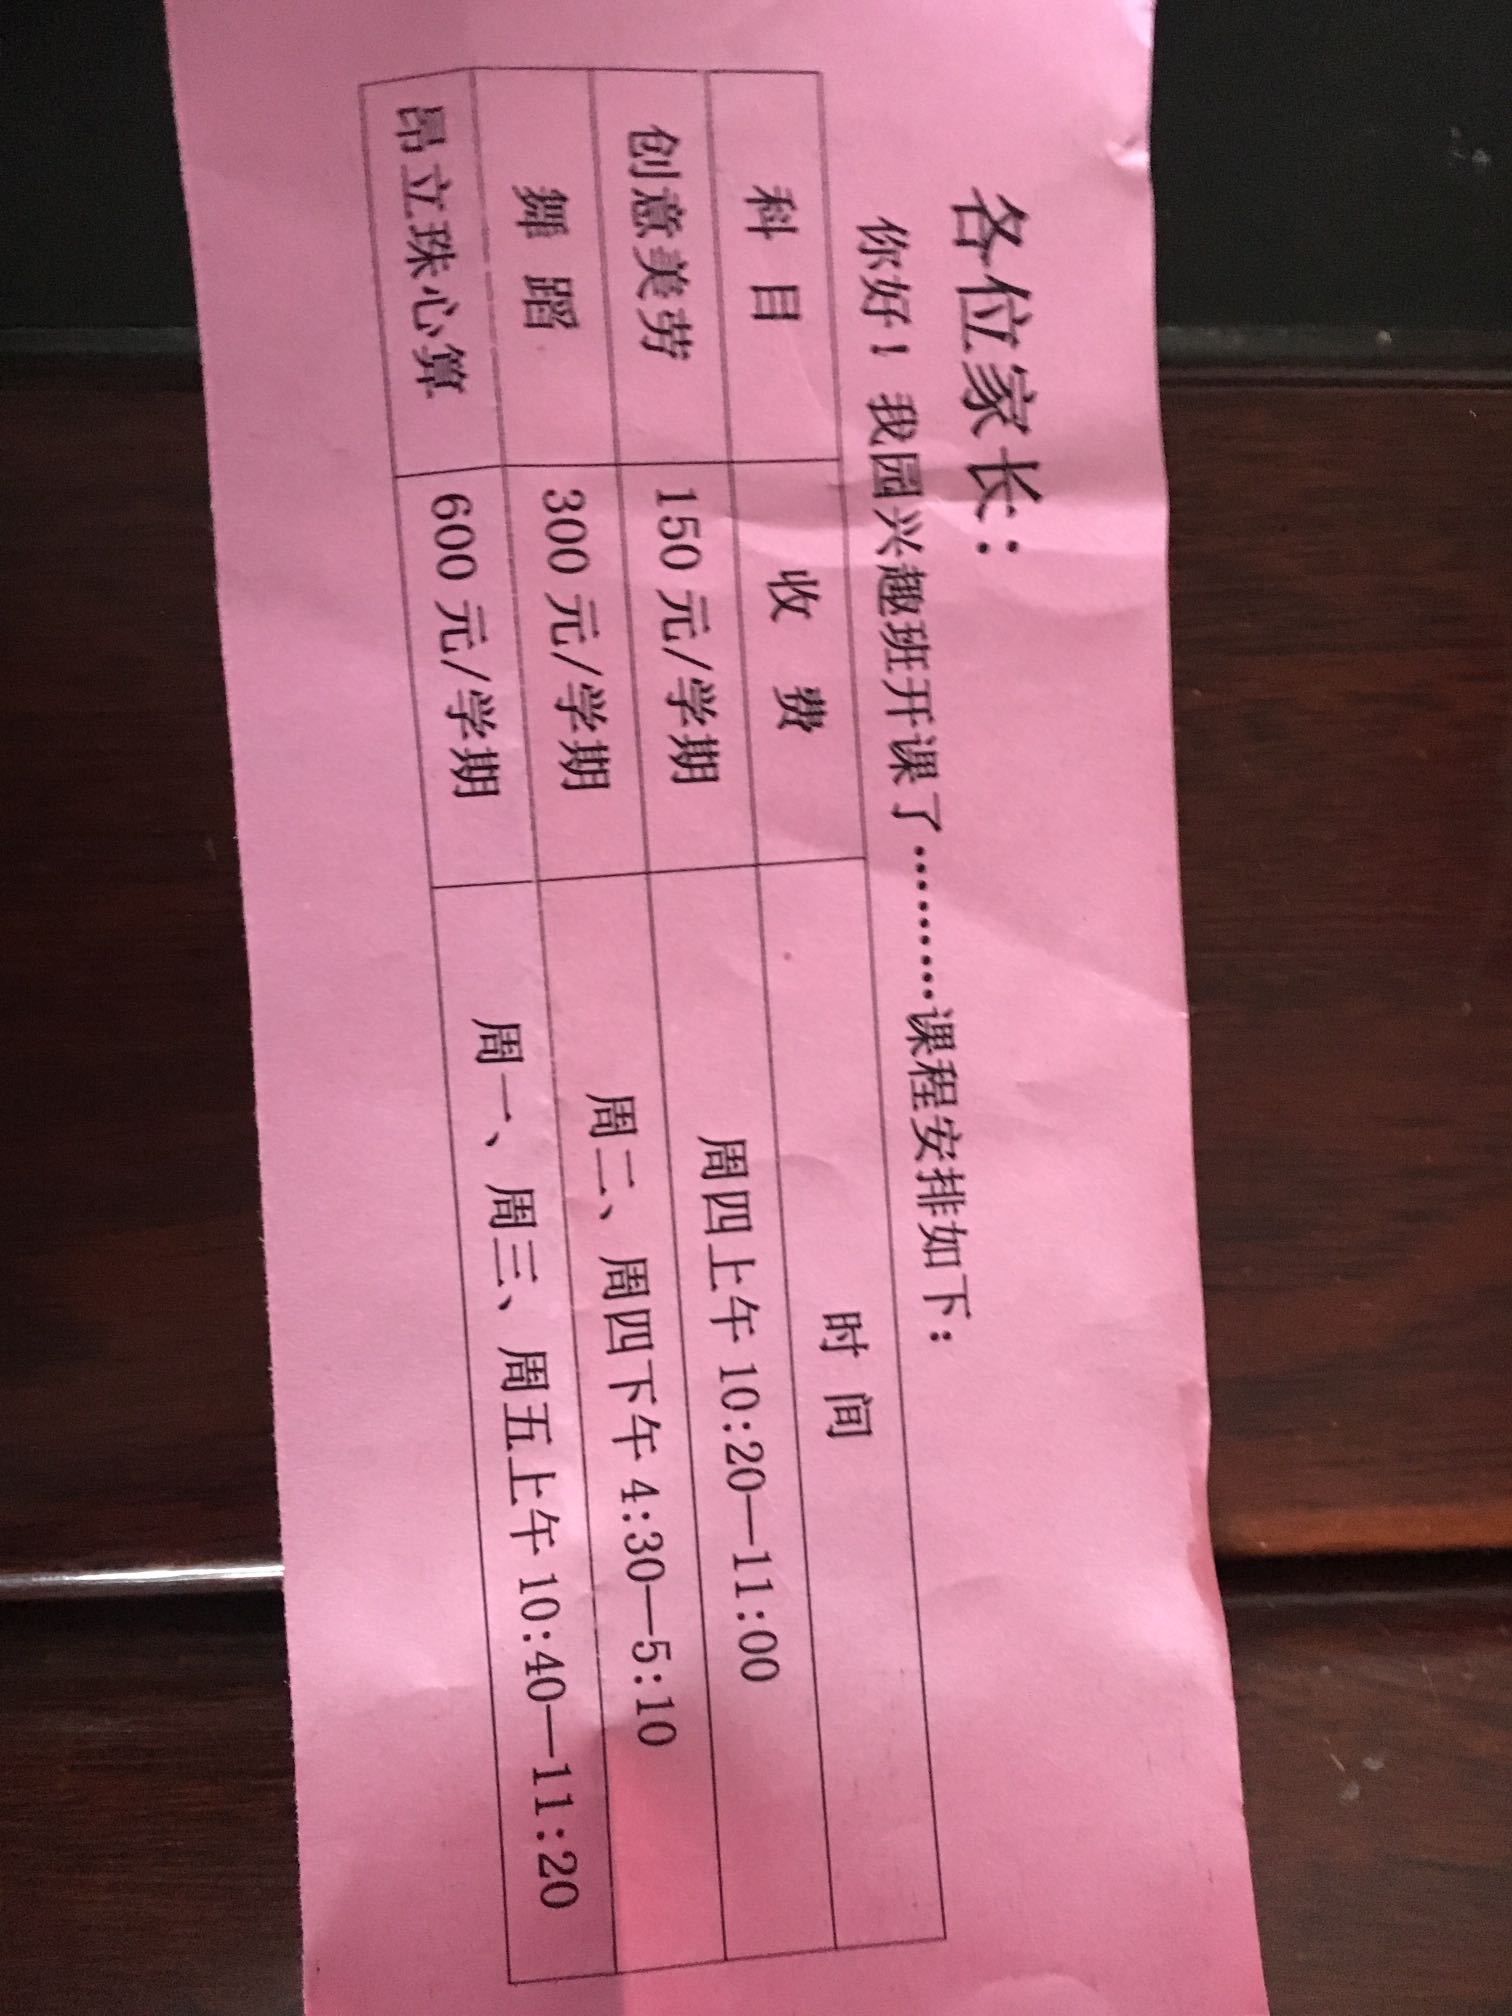 各位家长：
你好！我园兴趣班开课了………课程安排如下：
科 目 收 费 时 间
创意美劳 150 元/学期 周四上午 10:20—11:00
舞 蹈 300 元/学期 周二、周四下午 4:30—5:10
昂立珠心算 600 元/学期 周一、周三、周五上午 10:40—11:20